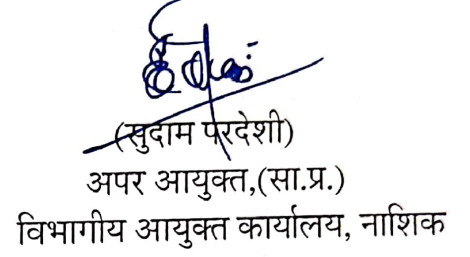 (सुदाम परदेशी)
अपर आयुक्त,(सा.प्र.)
विभागीय आयुक्त कार्यालय, नाशिक